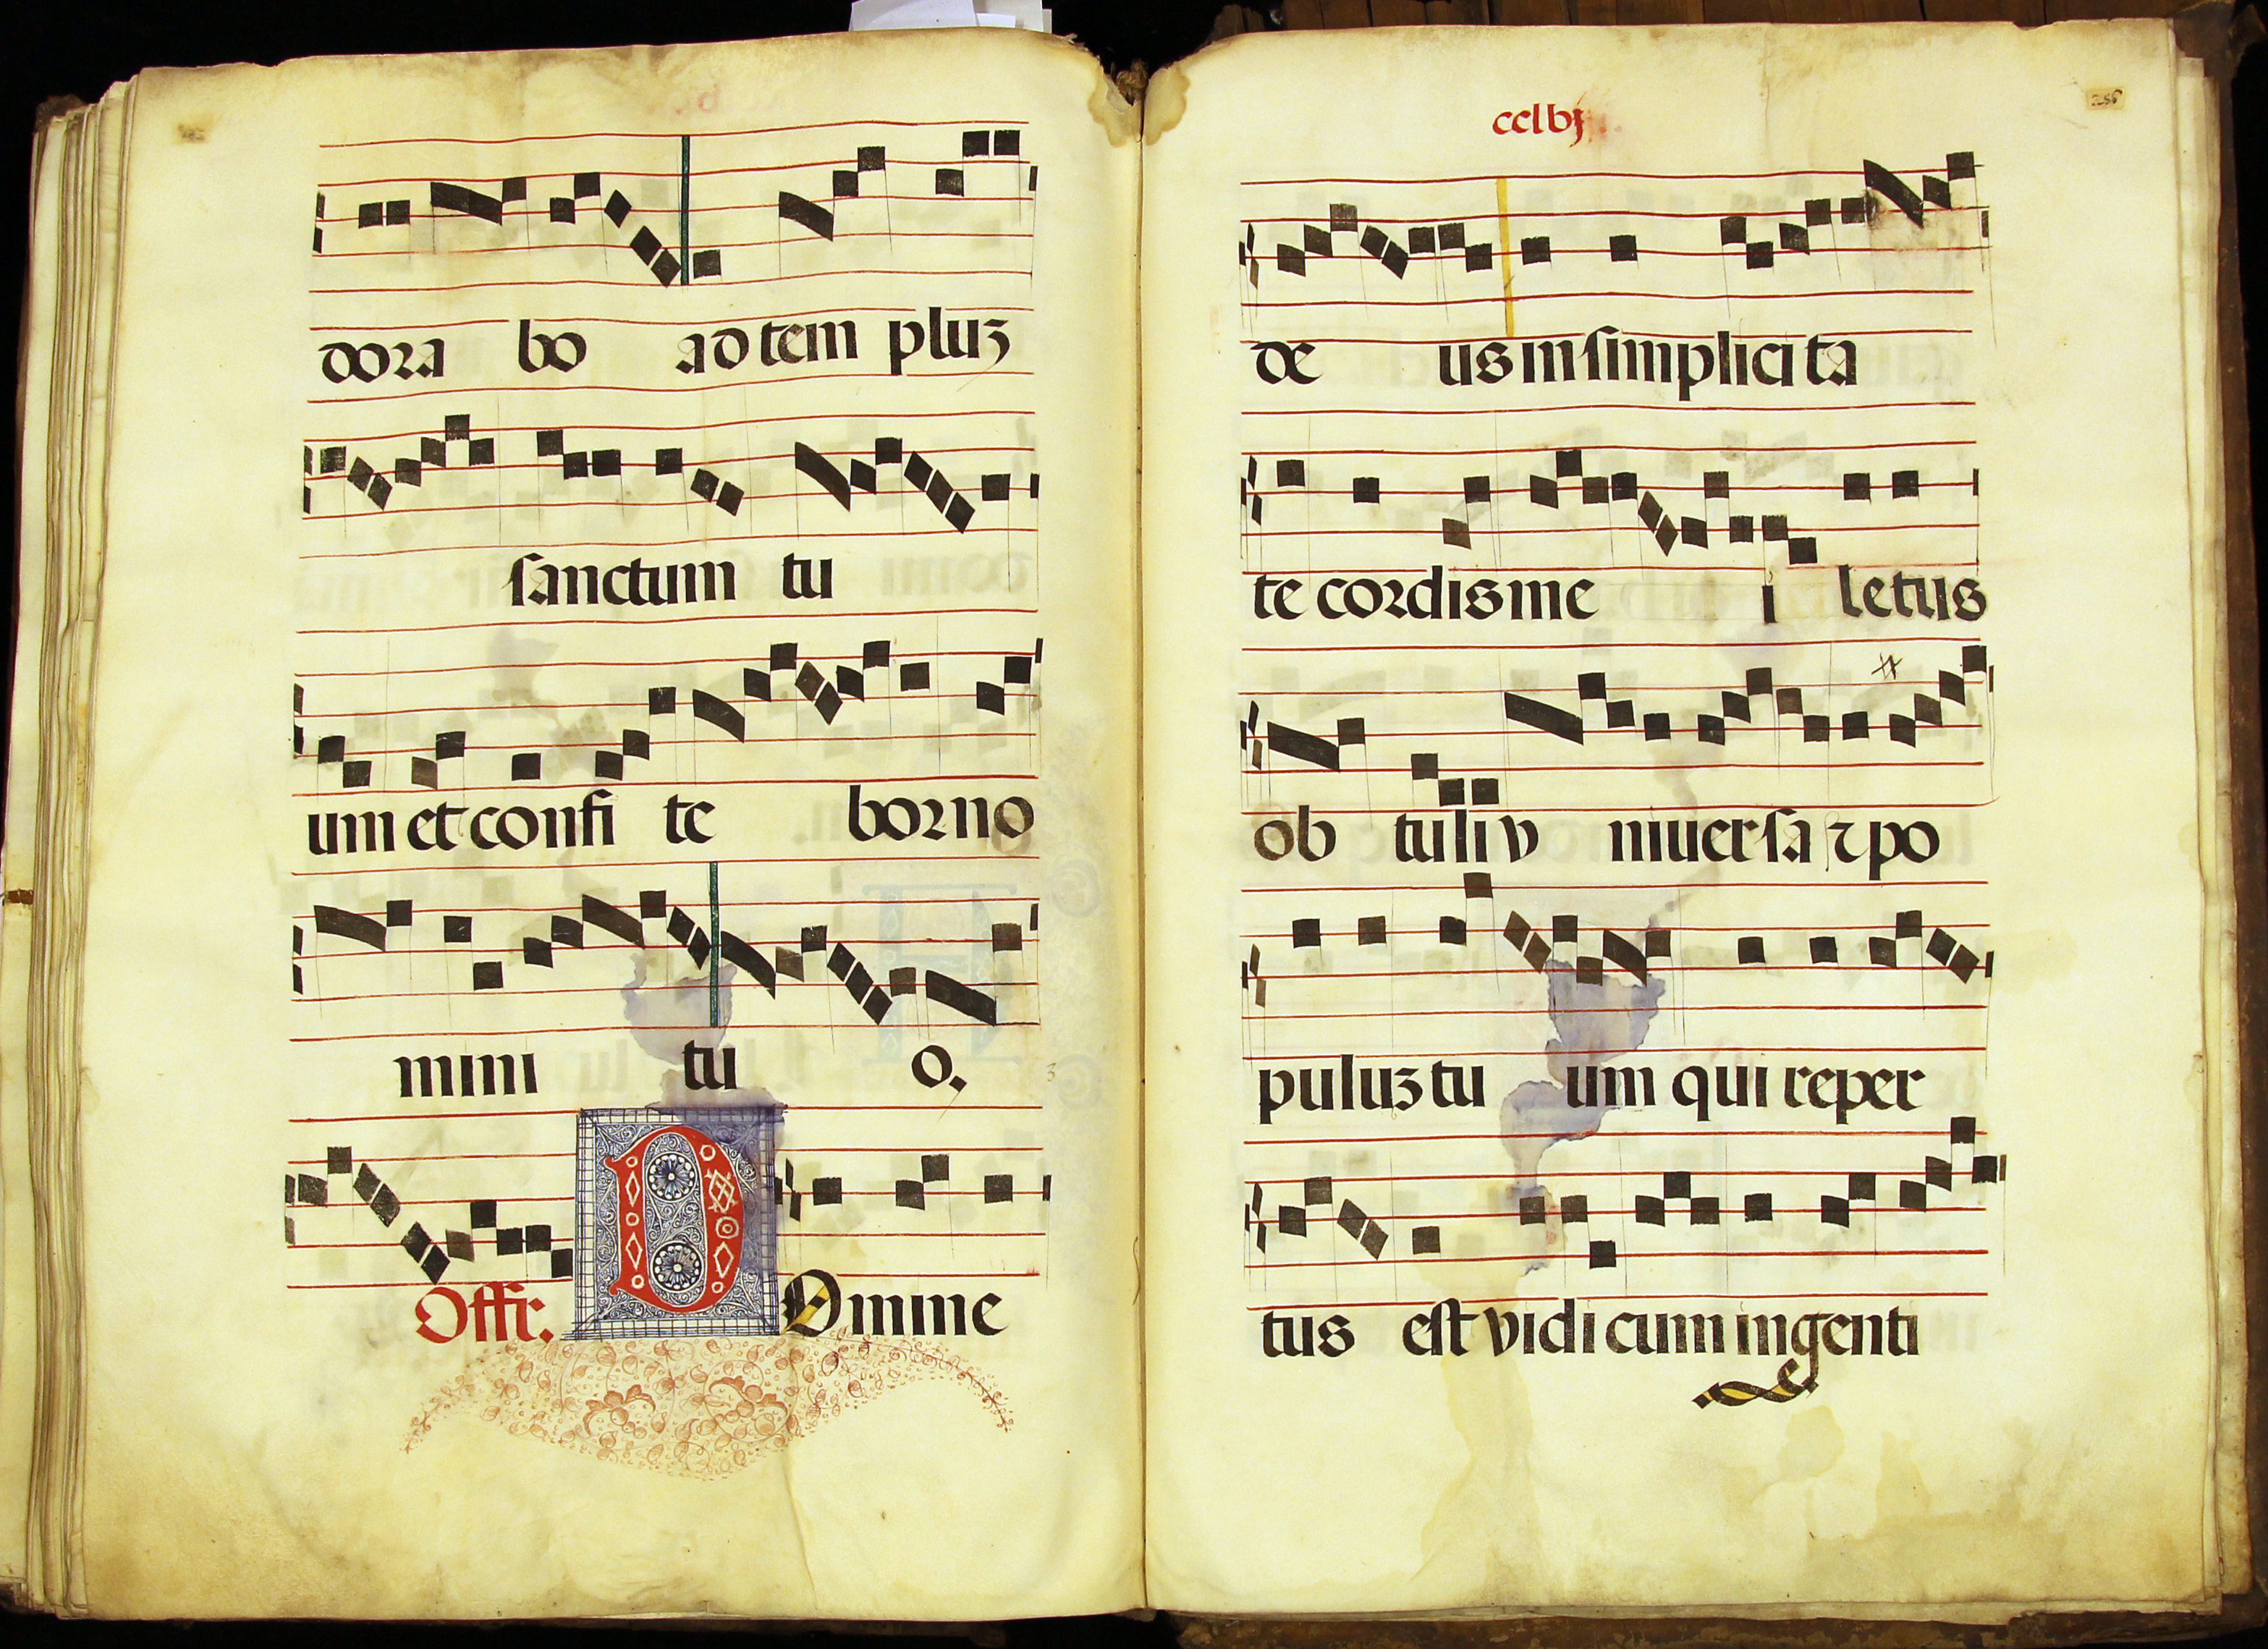 dora bo ad tem pluʒ
sanctum tu
um et confi te bor no
mini tu o.
Offr. D Omine
cclvj
de us in simplici ta
te cordis me i letus
ob tuli v niuersa ⁊ po
puluʒ tu um qui reper
tus est vidi cum ingenti